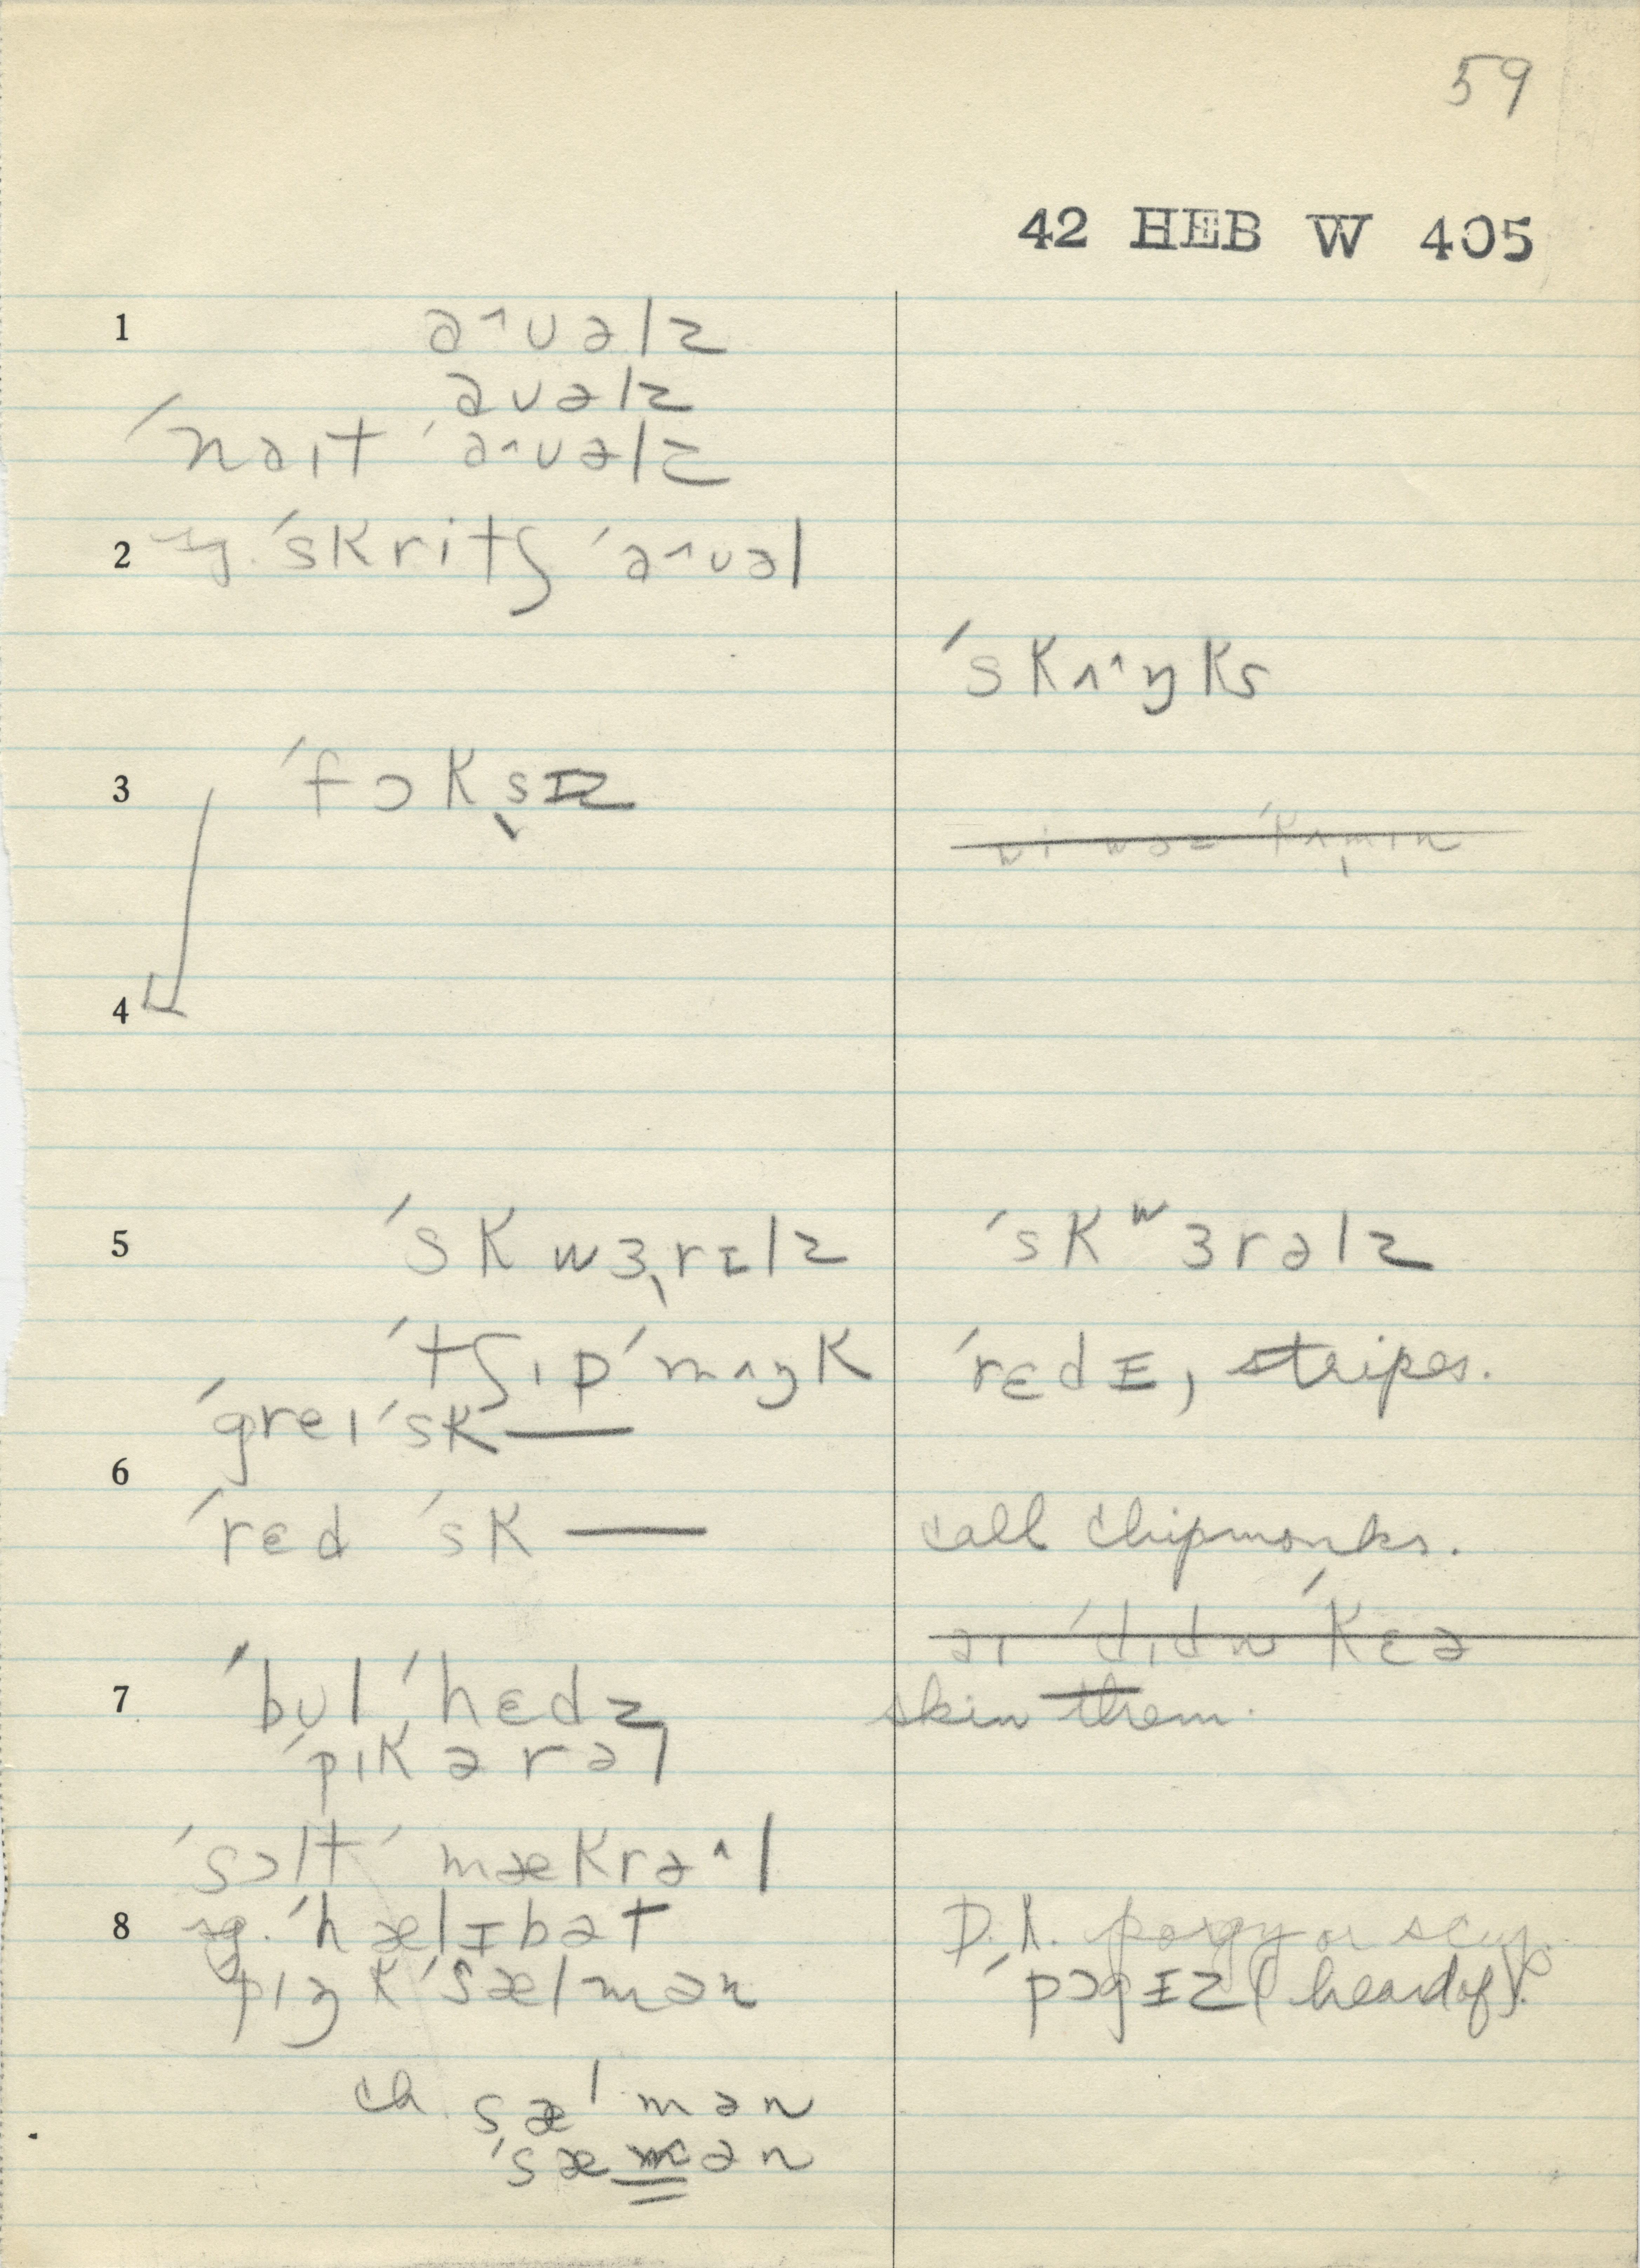 59
42 HEB W 405
1 a^ʊəlz
aʊəlz
ˈnaɪt ˈa^ʊəlz
2 sg. ˈskritʃ ˈa^ʊəl
ˈskʌ^ŋks
3 ˈfɔksɪz
4
5 ˈskwɜrɪlz ˈskʷɜrəlz
ˈtʃɪpˈmʌŋk ˈrɛdɪ, stripes.
ˈgreɪ ˈsk—
6
ˈrɛd ˈsk— call chipmonks.
aɪ ˈdɪdn ˈkɛə
7 ˈbʊlˈhɛdz skin them.
ˈpɪkərəl
ˈsɔltˈmækrə^l
8 sg. ˈhælɪbət D.K. porgy or scup.
ˈpɪŋkˈsælmən ˈpɔgɪz (heard of).
ch sælmən
ˈsæmən